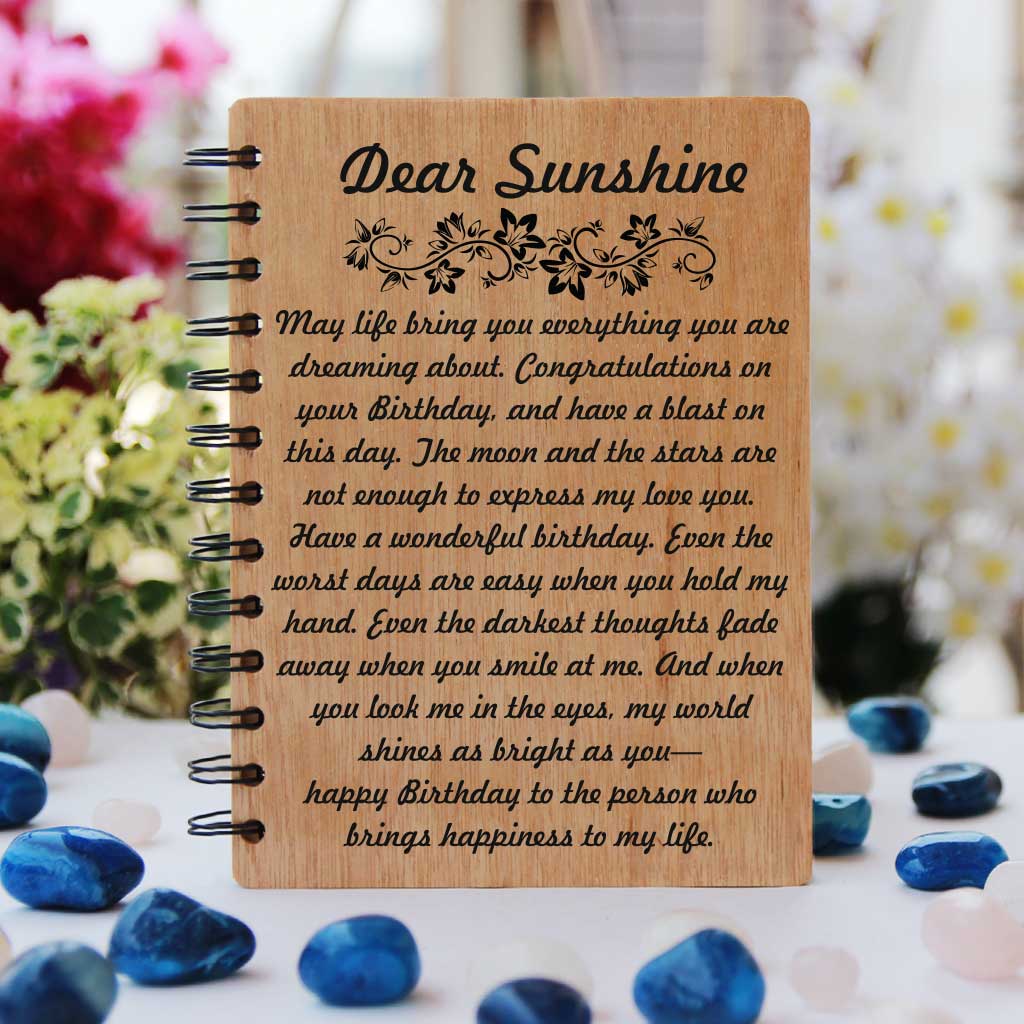 Dear Sunshine
May life bring you everything you are
dreaming about. Congratulations on
your Birthday, and have a blast on
this day. The moon and the stars are
not enough to express my love you.
Have a wonderful birthday. Even the
worst days are easy when you hold my
hand. Even the darkest thoughts fade
away when you smile at me. And when
you look me in the eyes, my world
shines as bright as you—
happy Birthday to the person who
brings happiness to my life.